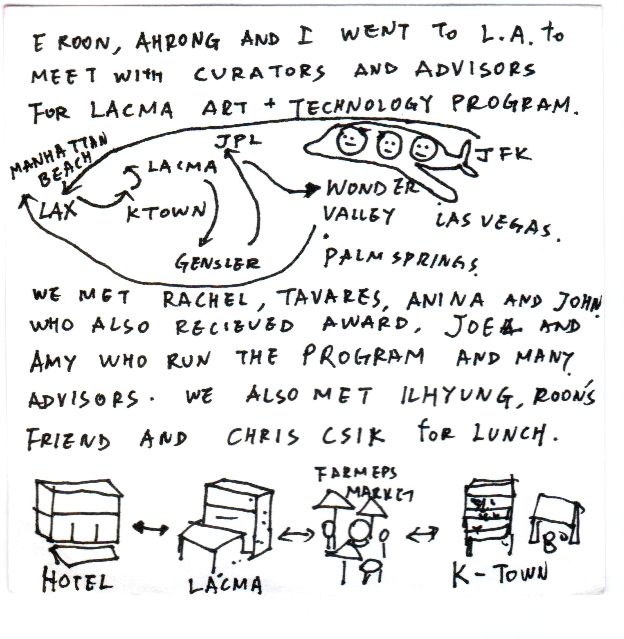 E ROON, AHRONG AND I WENT TO L.A. to
MEET WITH CURATORS AND ADVISORS
FOR LACMA ART + TECHNOLOGY PROGRAM.
MANHATTAN
BEACH
JPL
JFK
LACMA
WONDER
VALLEY
LAX
KTOWN
LAS VEGAS.
GENSLER
PALM SPRINGS
WE MET RACHEL, TAVARES, ANINA AND JOHN
WHO ALSO RECIEVED AWARD, JOEL AND
AMY WHO RUN THE PROGRAM AND MANY
ADVISORS. WE ALSO MET ILHYUNG, ROON'S
FRIEND AND CHRIS CSIK for LUNCH.
FARMERS
MARKET
HOTEL
LACMA
K-TOWN